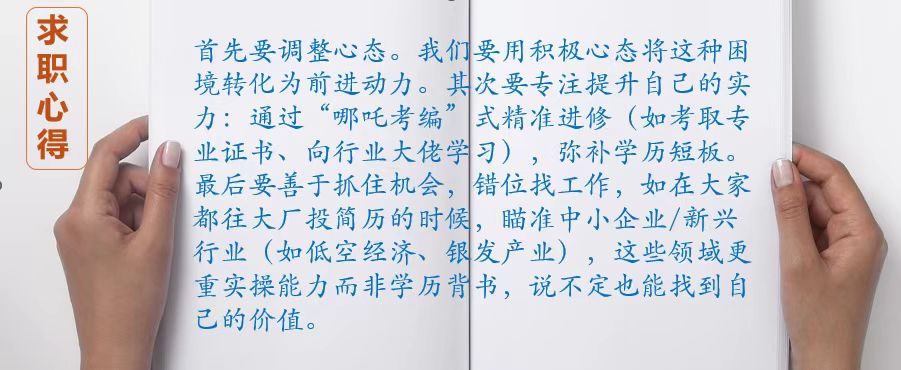 求职心得
首先要调整心态。我们要用积极心态将这种困
境转化为前进动力。其次要专注提升自己的实
力：通过“哪吒考编”式精准进修（如考取专
业证书、向行业大佬学习），弥补学历短板。
最后要善于抓住机会，错位找工作，如在大家
都往大厂投简历的时候，瞄准中小企业/新兴
行业（如低空经济、银发产业），这些领域更
重实操能力而非学历背书，说不定也能找到自
己的价值。